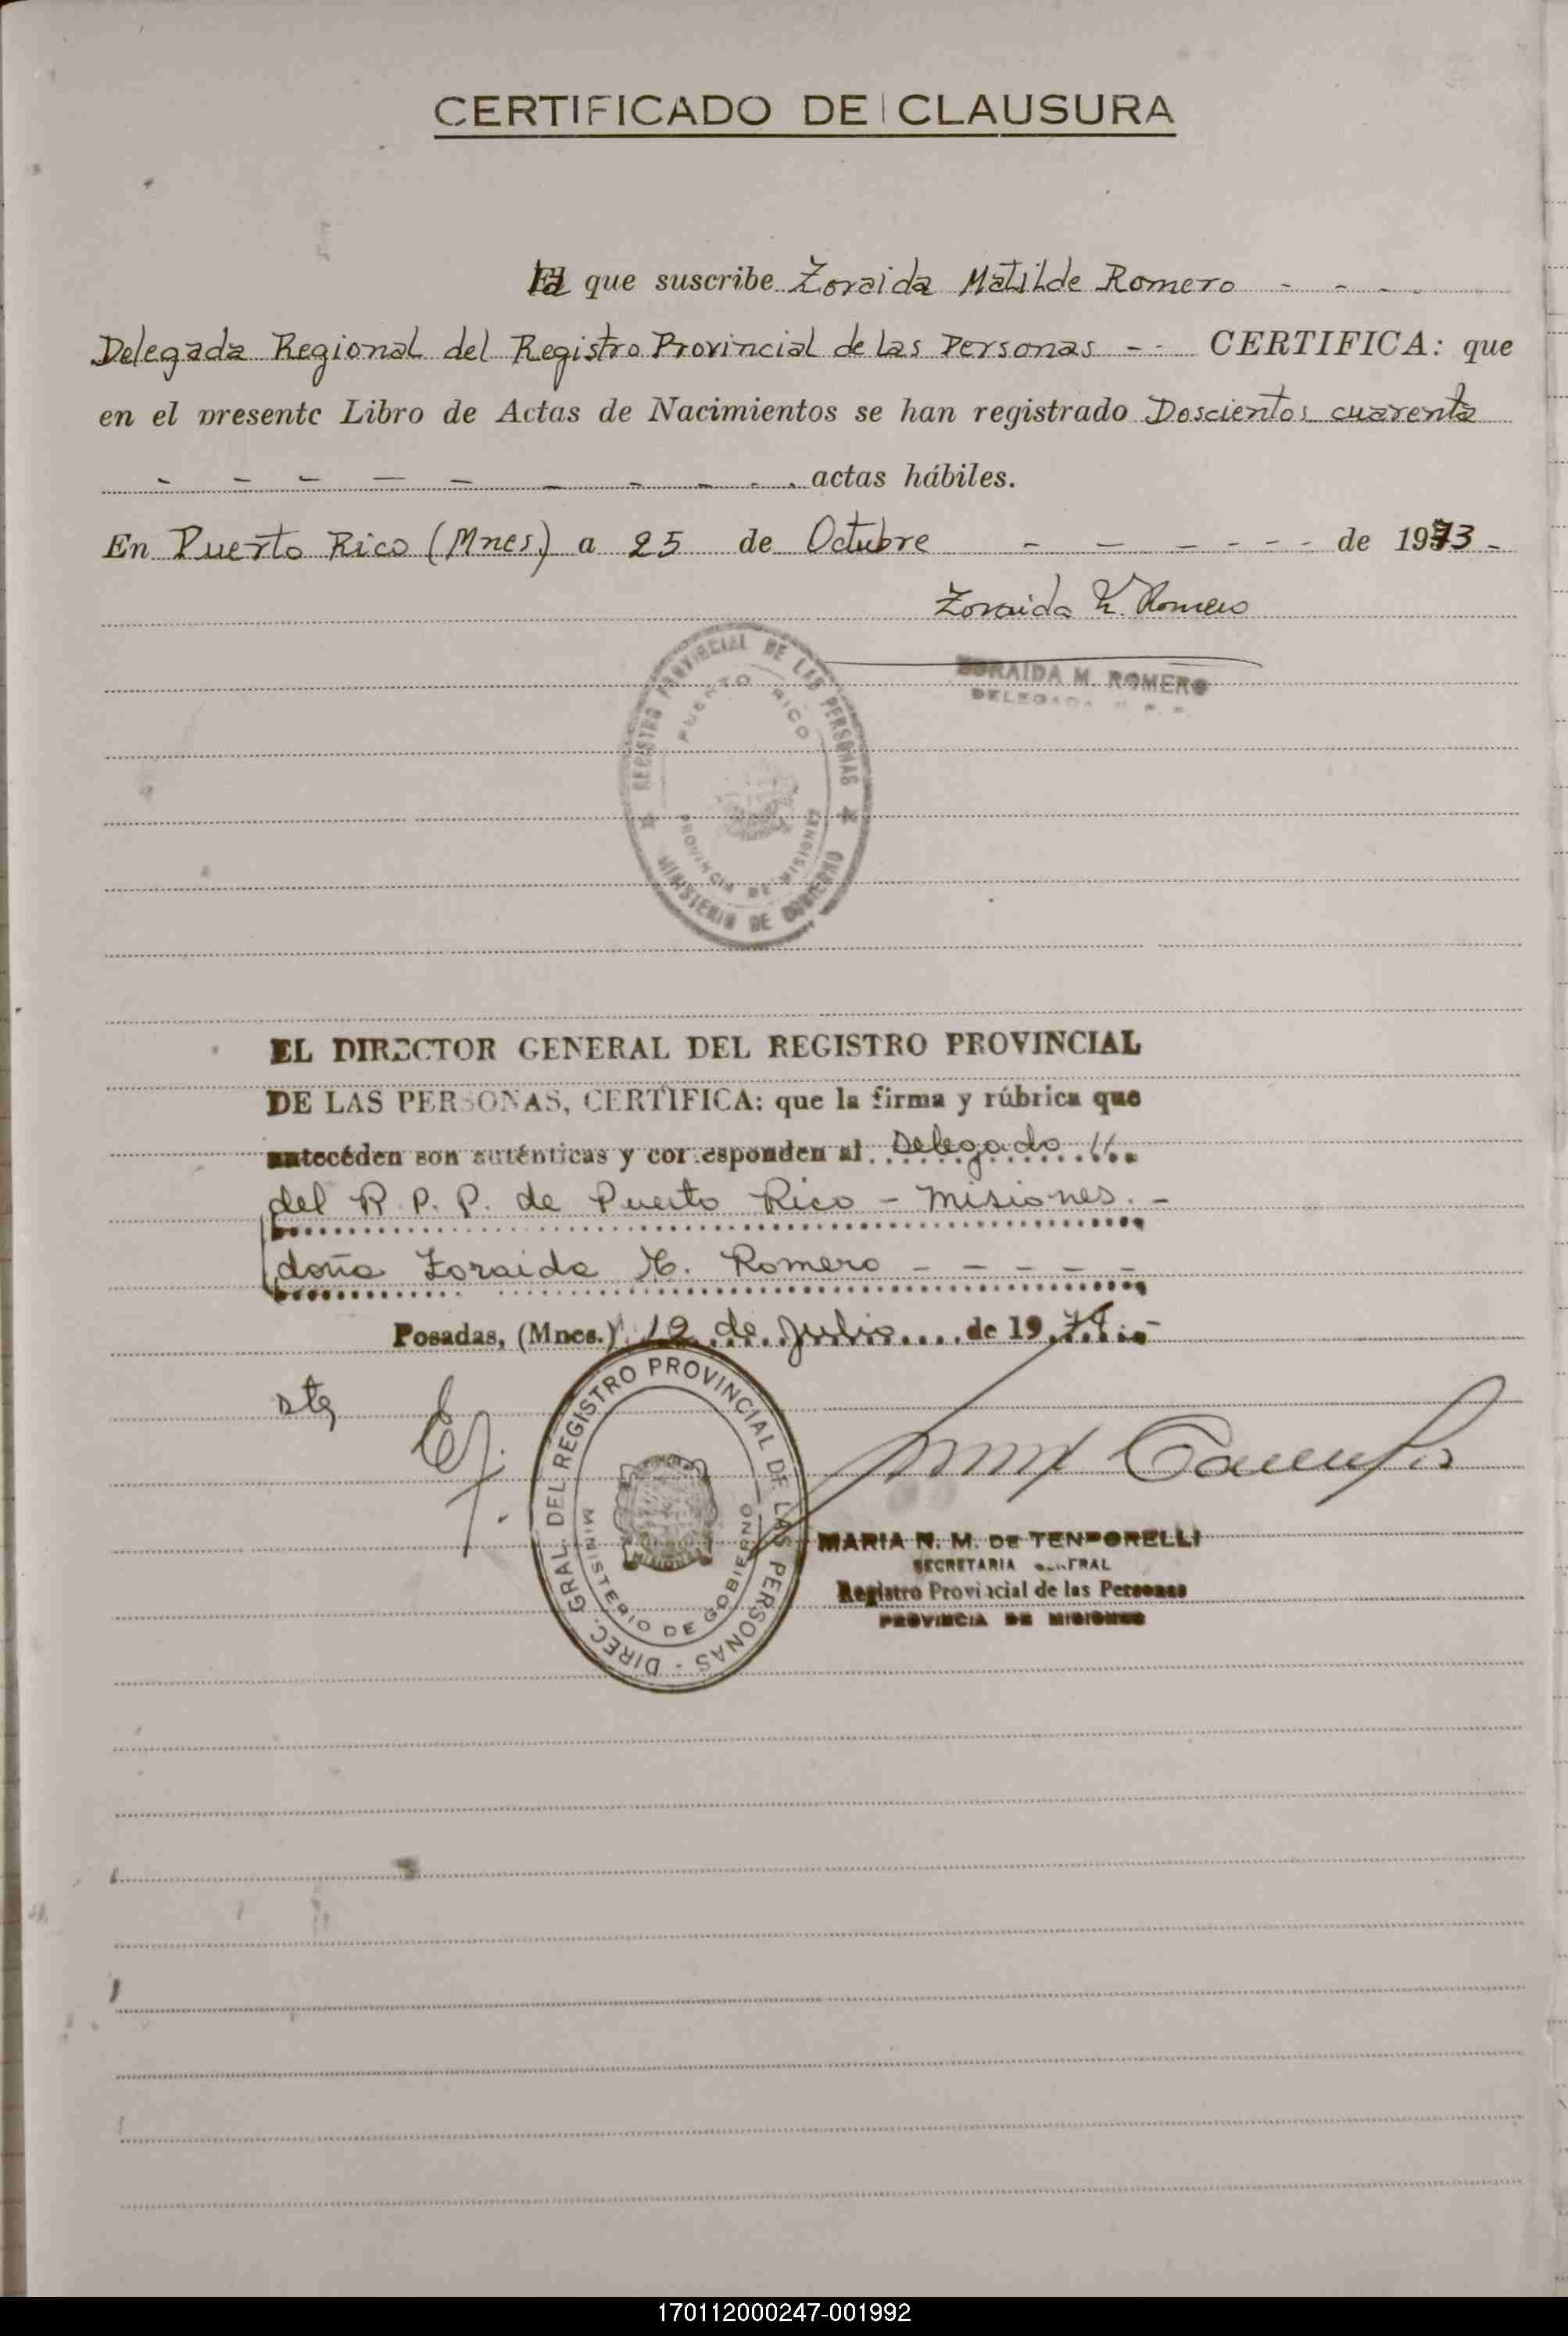 CERTIFICADO DE CLAUSURA
La que suscribe Zoraida Matilde Romero - - - -
Delegada Regional del Registro Provincial de las Personas - - CERTIFICA: que
en el presente Libro de Actas de Nacimientos se han registrado Doscientos cuarenta
- - - - - - - - - - actas hábiles.
En Puerto Rico (Mnes) a 25 de Octubre - - - - - - de 1973 -
Zoraida M. Romero
ZORAIDA M. ROMERO
DELEGADA R. P. P.
REGISTRO PROVINCIAL DE LAS PERSONAS
PUERTO RICO
PROVINCIA DE MISIONES
MINISTERIO DE GOBIERNO
EL DIRECTOR GENERAL DEL REGISTRO PROVINCIAL
DE LAS PERSONAS, CERTIFICA: que la firma y rúbrica que
antecéden son auténticas y corresponden al Delegado
del R. P. P. de Puerto Rico - Misiones. -
doña Zoraida M. Romero - - - - -
Posadas, (Mnes.) 12 de Julio de 1974.-
DIREC. GRAL. DEL REGISTRO PROVINCIAL DE LAS PERSONAS -
MINISTERIO DE GOBIERNO
MISIONES
MARIA N. M. DE TENPORELLI
SECRETARIA GENERAL
Registro Provincial de las Personas
PROVINCIA DE MISIONES
170112000247-001992